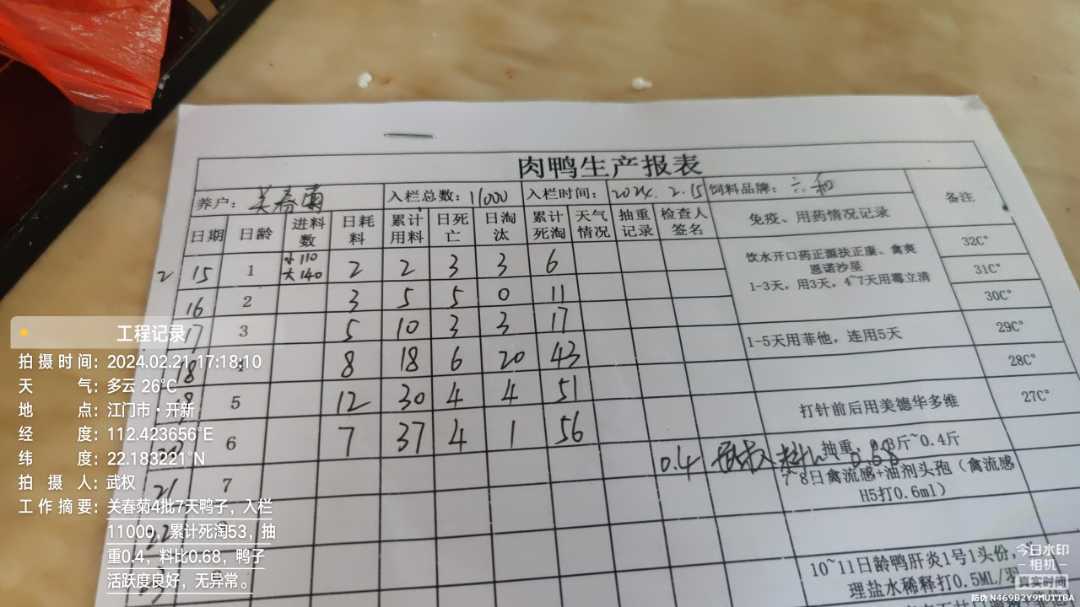 肉鸭生产报表
养户: 关春菊 入栏总数: 11000 入栏时间: 2024. 2. 15 饲料品牌: 六和 备注
日期 日龄 进料数 日耗料 累计用料 日死亡 日淘汰 累计死淘 天气情况 抽重记录 检查人签名 免疫、用药情况记录
2 15 1 小110 大140 2 2 3 3 6
饮水开口药正源扶正康、禽爽
恩诺沙星
1-3天，用3天，4~7天用霉立清
32C°
31C°
16 2 3 5 5 0 11 30C°
17 3 5 10 3 3 17 1-5天用菲他，连用5天 29C°
8 18 6 20 43 28C°
5 12 30 4 4 51 打针前后用美德华多维 27C°
6 7 37 4 1 56 抽重，0.3斤~0.4斤
0.4
21 7 7-8日禽流感+油剂头孢（禽流感
H5打0.6ml）
22
23 10~11日龄鸭肝炎1号1头份，
理盐水稀释打0.5ML/羽
工程记录
拍摄时间: 2024.02.21 17:18:10
天气: 多云 26℃
地点: 江门市·开新
经度: 112.423656°E
纬度: 22.183221°N
拍摄人: 武权
工作摘要: 关春菊4批7天鸭子，入栏
11000，累计死淘53，抽
重0.4，料比0.68，鸭子
活跃度良好，无异常。
今日水印
相机
真实时间
防伪 N469B2Y9MUTTBA